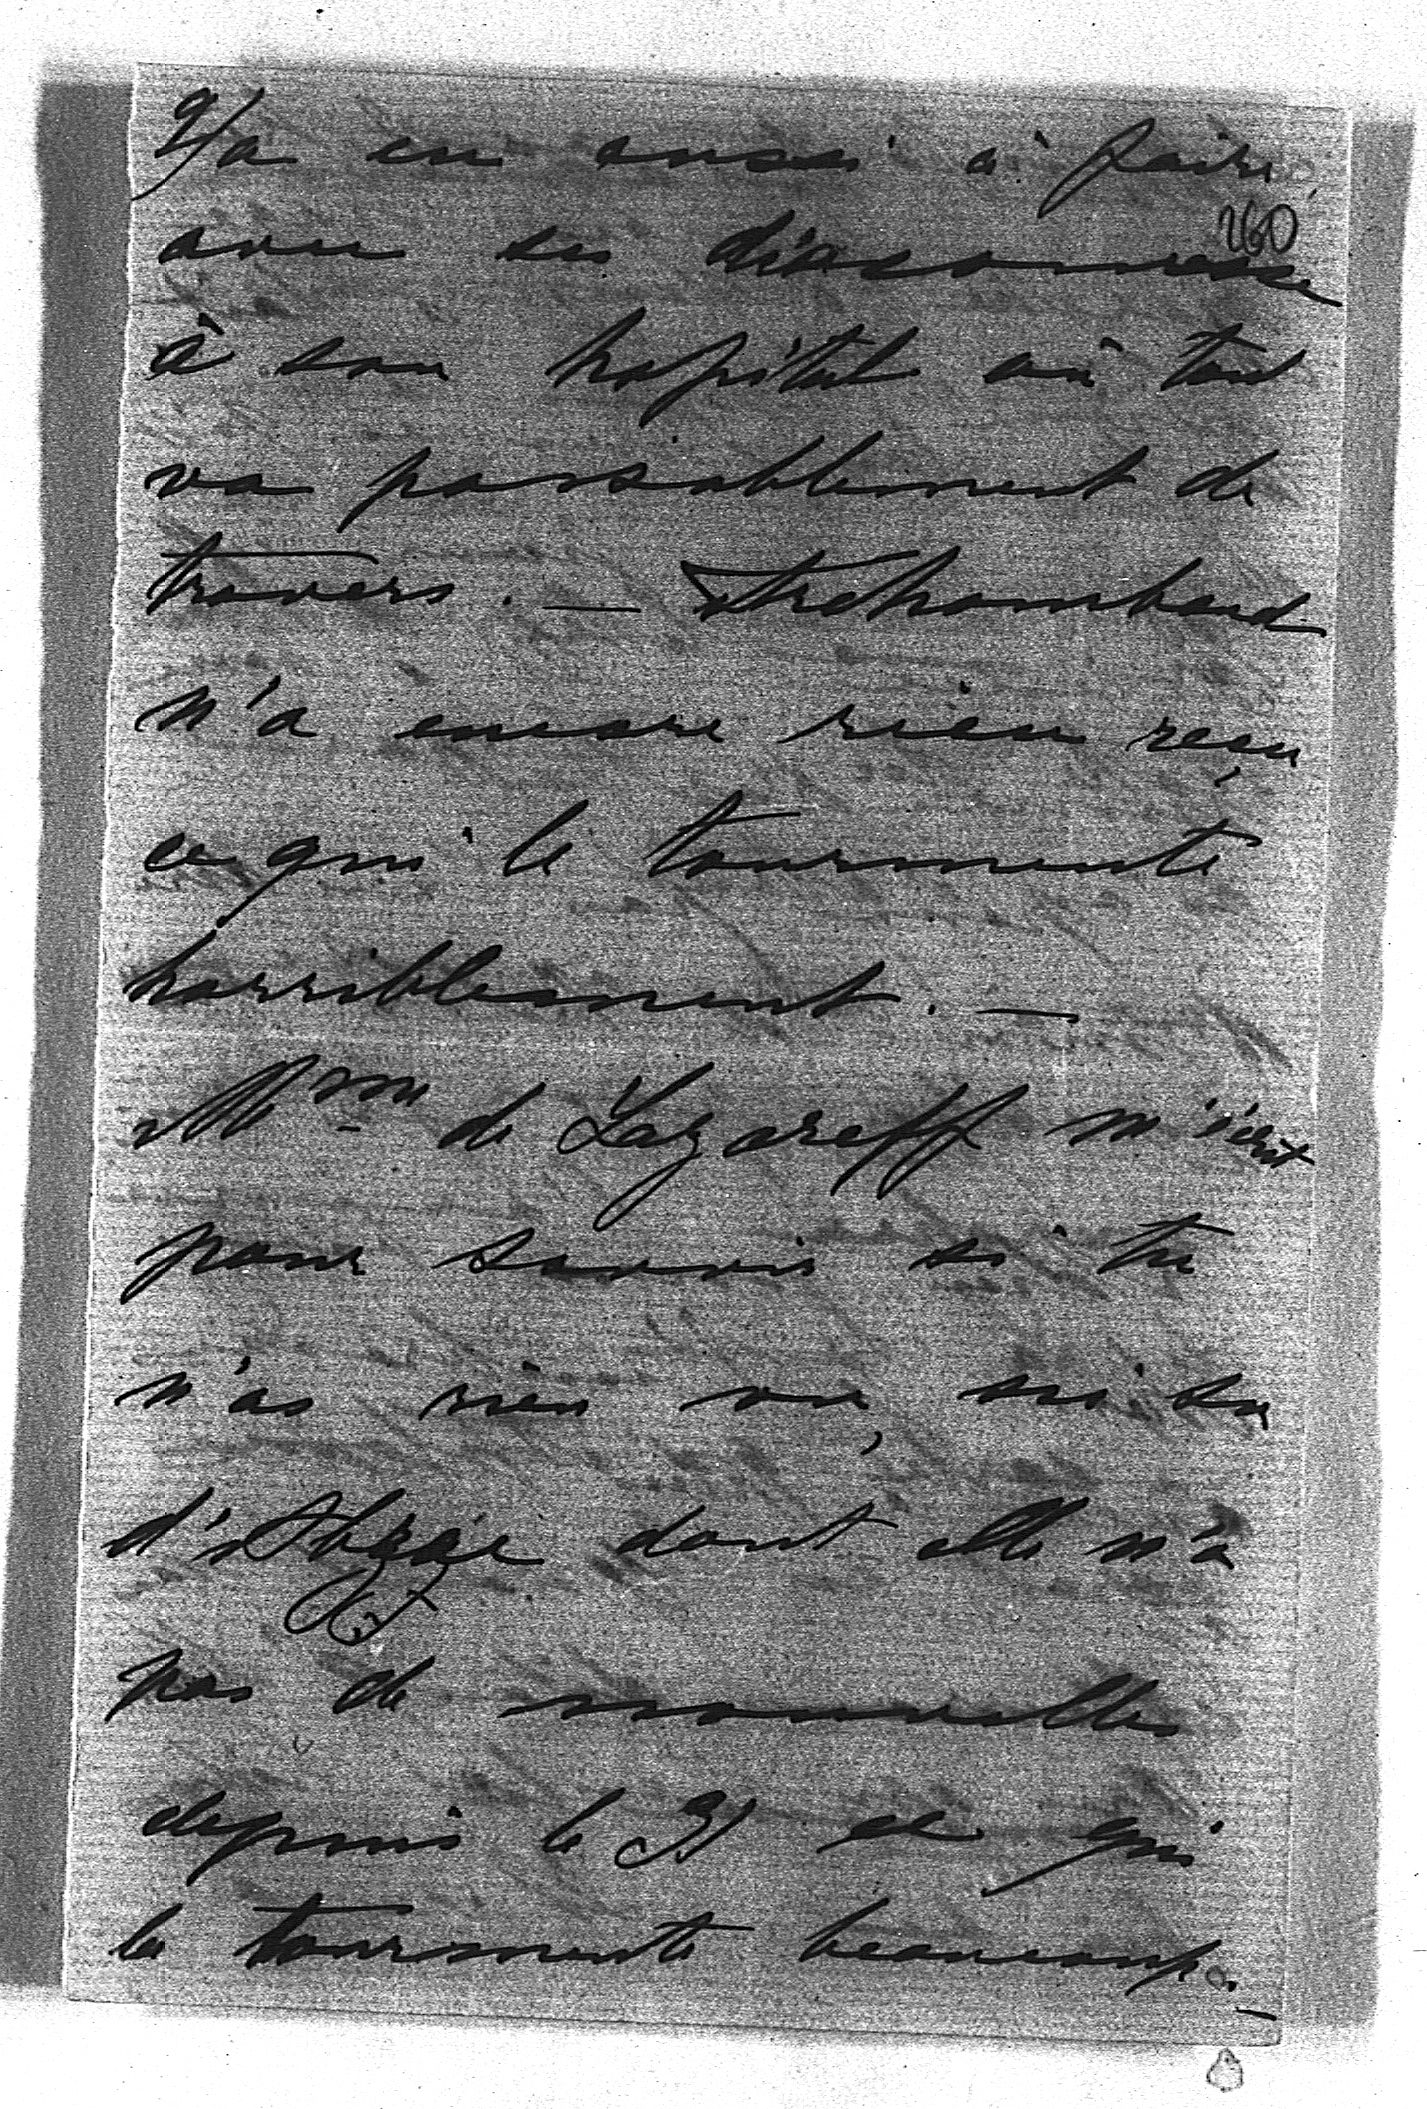 y a eu aussi à faire
260
avec ses diaconesse
à son hopital où tout
va passablement de
travers. —
n'a encore rien reçu
ce qui le tourmente
horriblement. —
Mme de Lazareff m'écrit
pour savoir si tu
n'as rien vu, ni su
d' dont elle n'a
pas de nouvelles
depuis le 31 ce qui
la tourmente beaucoup. —